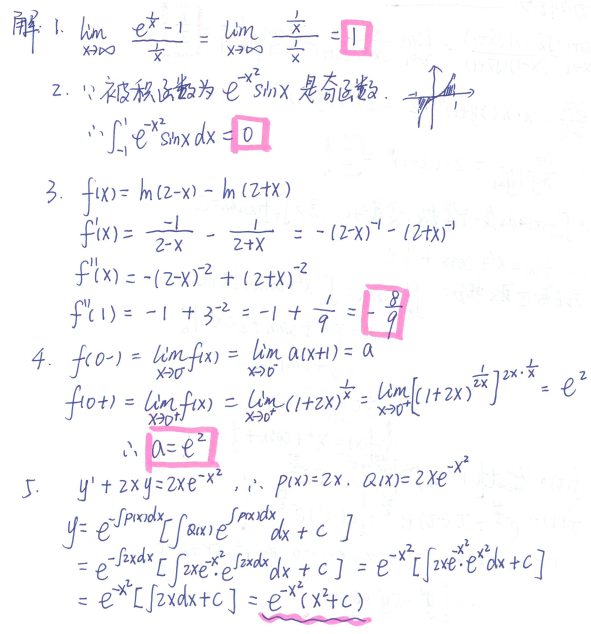 解: 1. lim_{x→∞} (e^{1/x} - 1)/(1/x) = lim_{x→∞} (1/x)/(1/x) = 1
2. ∵ 被积函数为 e^{-x²} sinx 是奇函数. -1 1
∴ ∫_{-1}^{1} e^{-x²} sinx dx = 0
3. f(x) = ln(2-x) - ln(2+x)
f'(x) = -1/(2-x) - 1/(2+x) = -(2-x)^{-1} - (2+x)^{-1}
f''(x) = -(2-x)^{-2} + (2+x)^{-2}
f''(1) = -1 + 3^{-2} = -1 + 1/9 = -8/9
4. f(0-) = lim_{x→0^-} f(x) = lim_{x→0^-} a(x+1) = a
f(0+) = lim_{x→0^+} f(x) = lim_{x→0^+} (1+2x)^{1/x} = lim_{x→0^+} [(1+2x)^{1/2x}]^{2x·1/x} = e²
∴ a = e²
5. y' + 2xy = 2xe^{-x²}, ∴ P(x) = 2x. Q(x) = 2xe^{-x²}
y = e^{-∫P(x)dx} [∫Q(x) e^{∫P(x)dx} dx + C ]
= e^{-∫2xdx} [∫2xe^{-x²}·e^{∫2xdx} dx + C ] = e^{-x²} [∫2xe^{-x²}·e^{x²} dx + C]
= e^{-x²} [∫2xdx + C] = e^{-x²} (x² + C)